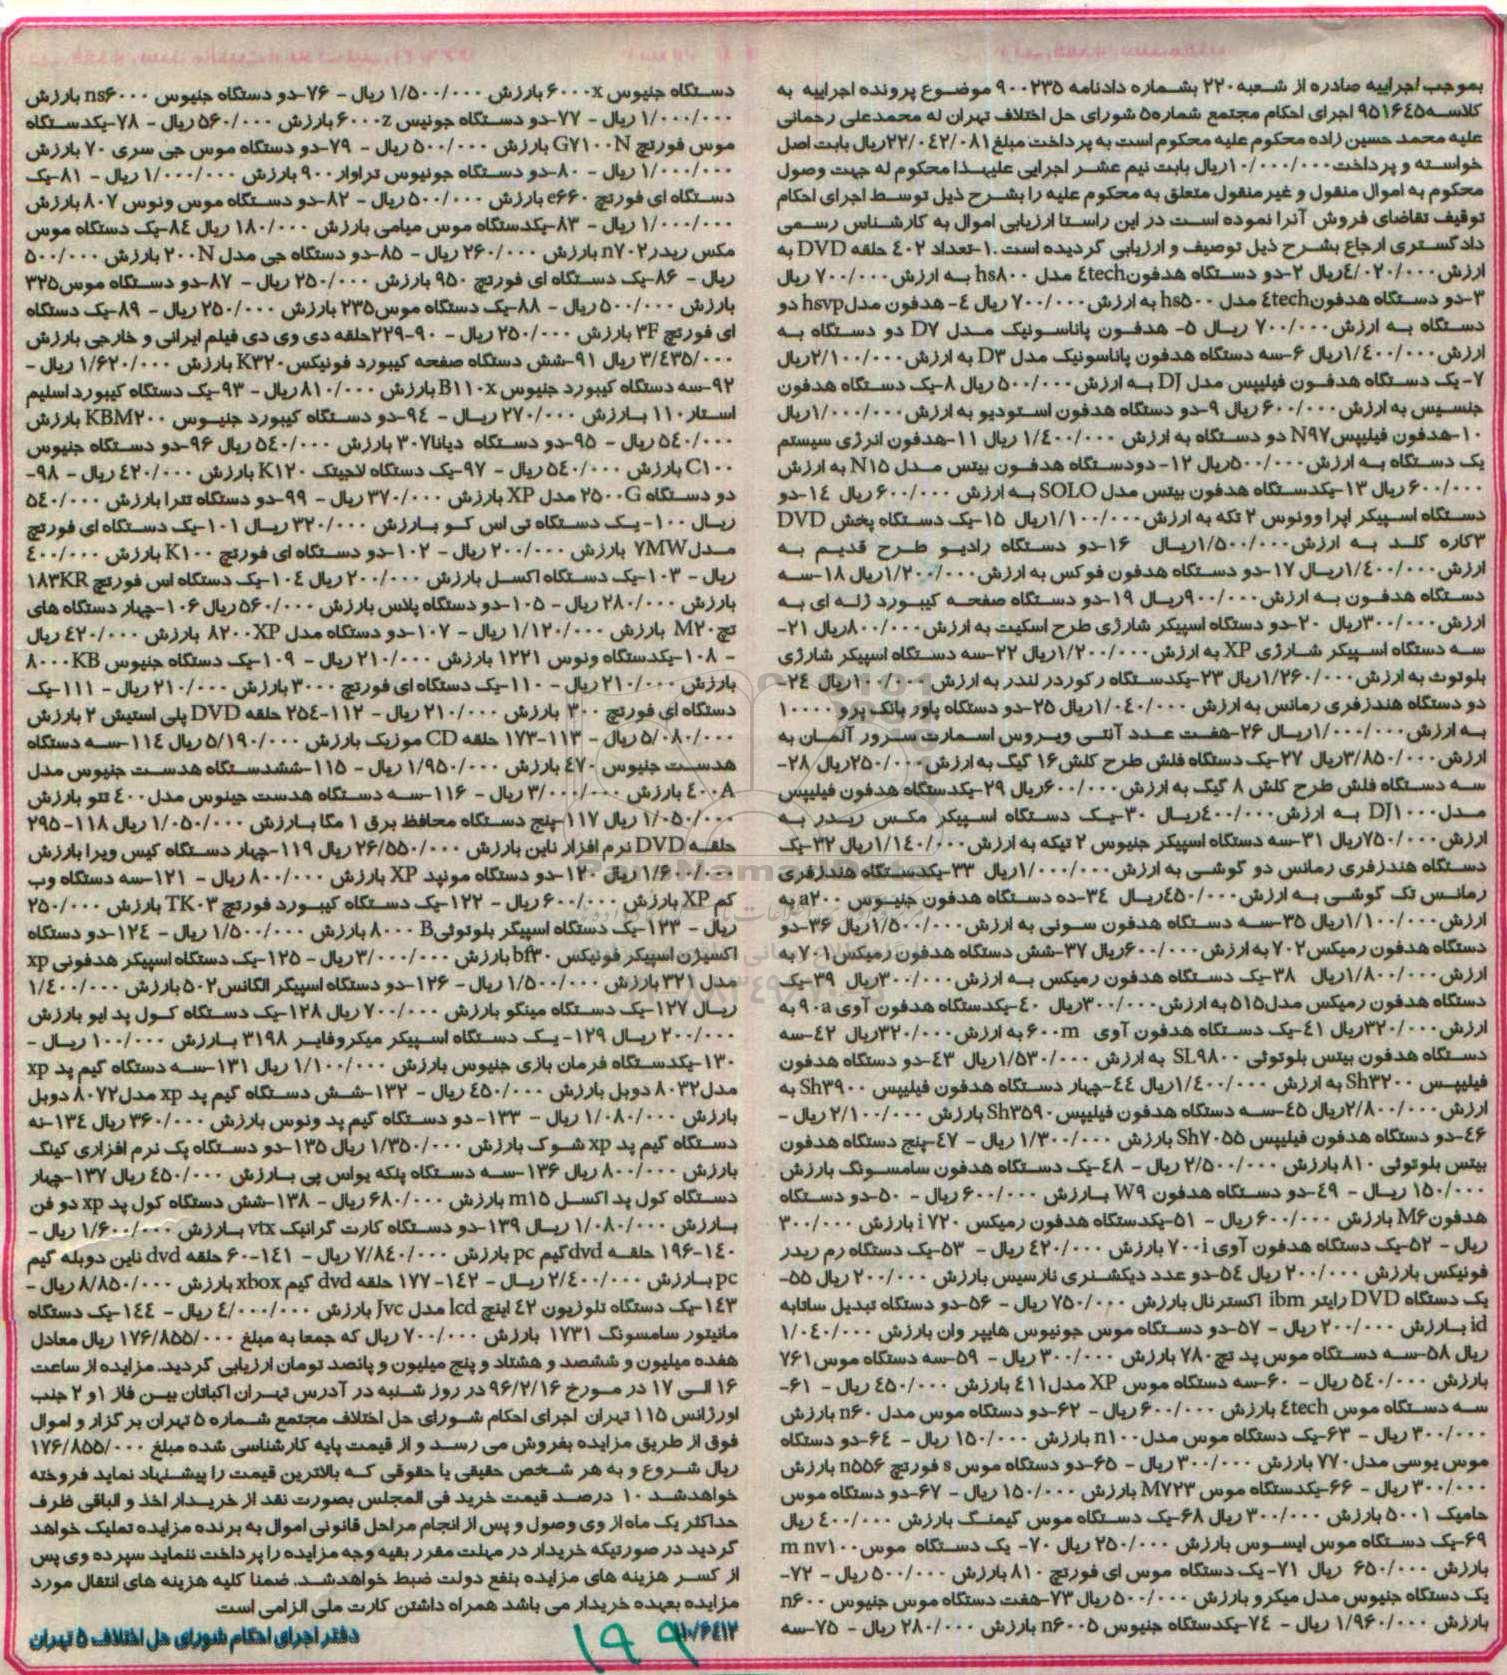 بموجب اجراییه صادره از شعبه۲۲۰ بشماره دادنامه ۹۰۰۲۳۵ موضوع پرونده اجراییه به
کلاسه۹۵۱۶۴۵ اجرای احکام مجتمع شماره۵ شورای حل اختلاف تهران له محمدعلی رحمانی
علیه محمد حسین زاده محکوم علیه محکوم است به پرداخت مبلغ۲۲/۰۴۲/۰۸۱ریال بابت اصل
خواسته و پرداخت۱۰/۰۰۰/۰۰۰ریال بابت نیم عشر اجرایی علیهذا محکوم له جهت وصول
محکوم به اموال منقول و غیرمنقول متعلق به محکوم علیه را بشرح ذیل توسط اجرای احکام
توقیف تقاضای فروش آنرا نموده است در این راستا ارزیابی اموال به کارشناس رسمی
دادگستری ارجاع بشرح ذیل توصیف و ارزیابی گردیده است .۱-تعداد ۴۰۲ حلقه DVD به
ارزش۴/۰۲۰/۰۰۰ریال ۲-دو دستگاه هدفون۴tech مدل hs۸۰۰ به ارزش۷۰۰/۰۰۰ ریال
۳-دو دستگاه هدفون۴tech مدل hs۵۰۰ به ارزش۷۰۰/۰۰۰ ریال ۴- هدفون مدلhsvp دو
دستگاه به ارزش۷۰۰/۰۰۰ ریال ۵- هدفون پاناسونیک مدل D۷ دو دستگاه به
ارزش۱/۴۰۰/۰۰۰ریال ۶-سه دستگاه هدفون پاناسونیک مدل D۳ به ارزش۲/۱۰۰/۰۰۰ریال
۷- یک دستگاه هدفون فیلیپس مدل DJ به ارزش۵۰۰/۰۰۰ ریال ۸-یک دستگاه هدفون
جنسیس به ارزش۶۰۰/۰۰۰ ریال ۹-دو دستگاه هدفون استودیو به ارزش۱/۰۰۰/۰۰۰ریال
۱۰-هدفون فیلیپسN۹۷ دو دستگاه به ارزش ۱/۴۰۰/۰۰۰ ریال ۱۱-هدفون انرژی سیستم
یک دستگاه به ارزش۵۰۰/۰۰۰ریال ۱۲- دودستگاه هدفون بیتس مدل N۱۵ به ارزش
۶۰۰/۰۰۰ ریال ۱۳-یکدستگاه هدفون بیتس مدل SOLO به ارزش ۶۰۰/۰۰۰ ریال ۱۴-دو
دستگاه اسپیکر اپرا وونوس ۲ تکه به ارزش۱/۱۰۰/۰۰۰ریال ۱۵-یک دستگاه پخش DVD
۳کاره کلد به ارزش۱/۵۰۰/۰۰۰ریال ۱۶-دو دستگاه رادیو طرح قدیم به
ارزش۱/۴۰۰/۰۰۰ریال ۱۷-دو دستگاه هدفون فوکس به ارزش۱/۲۰۰/۰۰۰ریال ۱۸-سه
دستگاه هدفون به ارزش۹۰۰/۰۰۰ریال ۱۹-دو دستگاه صفحه کیبورد ژله ای به
ارزش۳۰۰/۰۰۰ریال ۲۰-دو دستگاه اسپیکر شارژی طرح اسکیت به ارزش۸۰۰/۰۰۰ریال ۲۱-
سه دستگاه اسپیکر شارژی XP به ارزش۱/۲۰۰/۰۰۰ریال ۲۲-سه دستگاه اسپیکر شارژی
بلوتوث به ارزش۱/۲۶۰/۰۰۰ریال ۲۳-یکدستگاه رکوردر لندر به ارزش۱۰۰/۰۰۰ریال ۲۴-
دو دستگاه هندزفری رمانس به ارزش ۱/۰۴۰/۰۰۰ریال ۲۵-دو دستگاه پاور بانک پرو ۱۰۰۰۰
به ارزش۱/۰۰۰/۰۰۰ریال ۲۶-هفت عدد آنتی ویروس اسمارت سرور آلمان به
ارزش۳/۸۵۰/۰۰۰ریال ۲۷-یک دستگاه فلش طرح کلش۱۶ گیگ به ارزش۲۵۰/۰۰۰ریال ۲۸-
سه دستگاه فلش طرح کلش ۸ گیگ به ارزش۶۰۰/۰۰۰ریال ۲۹-یکدستگاه هدفون فیلیپس
مدلDJ۱۰۰۰ به ارزش۴۰۰/۰۰۰ریال ۳۰-یک دستگاه اسپیکر مکس ریدر به
ارزش۷۵۰/۰۰۰ریال ۳۱-سه دستگاه اسپیکر جنیوس ۲ تیکه به ارزش۱/۱۴۰/۰۰۰ریال ۳۲-یک
دستگاه هندزفری رمانس دو گوشی به ارزش۱/۰۰۰/۰۰۰ریال ۳۳-یکدستگاه هندزفری
رمانس تک گوشی به ارزش۴۵۰/۰۰۰ریال ۳۴-ده دستگاه هدفون جنیوس a۲۰۰ به
ارزش۱/۱۰۰/۰۰۰ریال ۳۵-سه دستگاه هدفون سونی به ارزش۱/۵۰۰/۰۰۰ریال ۳۶-دو
دستگاه هدفون رمیکس۷۰۲ به ارزش۶۰۰/۰۰۰ریال ۳۷-شش دستگاه هدفون رمیکس۷۰۱ به
ارزش۱/۸۰۰/۰۰۰ریال ۳۸-یک دستگاه هدفون رمیکس به ارزش۳۰۰/۰۰۰ریال ۳۹-یک
دستگاه هدفون رمیکس مدل۵۱۵ به ارزش۳۰۰/۰۰۰ریال ۴۰-یکدستگاه هدفون آوی ۹۰a به
ارزش۳۲۰/۰۰۰ریال ۴۱-یک دستگاه هدفون آوی ۶۰۰m به ارزش۳۲۰/۰۰۰ریال ۴۲-سه
دستگاه هدفون بیتس بلوتوثی SL۹۸۰۰ به ارزش ۱/۵۳۰/۰۰۰ریال ۴۳-دو دستگاه هدفون
فیلیپس Sh۳۲۰۰ به ارزش ۱/۴۰۰/۰۰۰ریال ۴۴-چهار دستگاه هدفون فیلیپس Sh۳۹۰۰ به
ارزش۲/۸۰۰/۰۰۰ریال ۴۵-سه دستگاه هدفون فیلیپسSh۳۵۹۰ بارزش ۲/۱۰۰/۰۰۰ ریال -
۴۶-دو دستگاه هدفون فیلیپس Sh۷۰۵۵ بارزش ۱/۳۰۰/۰۰۰ ریال - ۴۷-پنج دستگاه هدفون
بیتس بلوتوثی ۸۱۰ بارزش ۲/۵۰۰/۰۰۰ ریال - ۴۸-یک دستگاه هدفون سامسونگ بارزش
۱۵۰/۰۰۰ ریال - ۴۹-دو دستگاه هدفون W۹ بارزش ۶۰۰/۰۰۰ ریال - ۵۰-دو دستگاه
هدفونM۶ بارزش ۶۰۰/۰۰۰ ریال - ۵۱-یکدستگاه هدفون رمیکس i ۷۲۰ بارزش ۳۰۰/۰۰۰
ریال - ۵۲-یک دستگاه هدفون آوی ۷۰۰i بارزش ۴۲۰/۰۰۰ ریال - ۵۳-یک دستگاه رم ریدر
فونیکس بارزش ۲۰۰/۰۰۰ ریال ۵۴-دو عدد دیکشنری نارسیس بارزش ۲۰۰/۰۰۰ ریال ۵۵-
یک دستگاه DVD رایتر ibm اکسترنال بارزش ۷۵۰/۰۰۰ ریال - ۵۶-دو دستگاه تبدیل ساتابه
id بارزش ۲۰۰/۰۰۰ ریال - ۵۷-دو دستگاه موس جونیوس هایپر وان بارزش ۱/۰۴۰/۰۰۰
ریال ۵۸-سه دستگاه موس پد تچ۷۸۰ بارزش ۳۰۰/۰۰۰ ریال - ۵۹-سه دستگاه موس۷۶۱
بارزش ۵۴۰/۰۰۰ ریال - ۶۰-سه دستگاه موس XP مدل۴۱۱ بارزش ۴۵۰/۰۰۰ ریال - ۶۱-
سه دستگاه موس ۴tech بارزش ۶۰۰/۰۰۰ ریال - ۶۲-دو دستگاه موس مدل n۶۰ بارزش
۳۰۰/۰۰۰ ریال - ۶۳-یک دستگاه موس مدل n۱۰۰ بارزش ۱۵۰/۰۰۰ ریال - ۶۴-دو دستگاه
موس یوسی مدل ۷۷۰ بارزش ۳۰۰/۰۰۰ ریال - ۶۵-دو دستگاه موس s فورتچ n۵۵۶ بارزش
۳۰۰/۰۰۰ ریال - ۶۶-یکدستگاه موس M۷۲۳ بارزش ۱۵۰/۰۰۰ ریال - ۶۷-دو دستگاه موس
حامیک ۵۰۰۱ بارزش ۳۰۰/۰۰۰ ریال ۶۸-یک دستگاه موس گیمنگ بارزش ۴۰۰/۰۰۰ ریال
۶۹-یک دستگاه موس ایسوس بارزش ۲۵۰/۰۰۰ ریال ۷۰- یک دستگاه موس m nv۱۰۰
بارزش ۶۵۰/۰۰۰ ریال ۷۱-یک دستگاه موس ای فورتچ ۸۱۰ بارزش ۵۰۰/۰۰۰ ریال - ۷۲-
یک دستگاه جنیوس مدل میکرو بارزش ۵۰۰/۰۰۰ ریال ۷۳-هفت دستگاه موس جنیوس n۶۰۰
بارزش ۱/۹۶۰/۰۰۰ ریال - ۷۴-یکدستگاه جنیوس n۶۰۰۵ بارزش ۲۸۰/۰۰۰ ریال - ۷۵-سه
دستگاه جنیوس ۶۰۰۰x بارزش ۱/۵۰۰/۰۰۰ ریال - ۷۶-دو دستگاه جنیوس ns۶۰۰۰ بارزش
۱/۰۰۰/۰۰۰ ریال - ۷۷-دو دستگاه جونیس ۶۰۰۰z بارزش ۵۶۰/۰۰۰ ریال - ۷۸-یکدستگاه
موس فورتچ G۷۱۰۰N بارزش ۵۰۰/۰۰۰ ریال - ۷۹-دو دستگاه موس جی سری ۷۰ بارزش
۱/۰۰۰/۰۰۰ ریال - ۸۰-دو دستگاه جونیوس تراوار۹۰۰ بارزش ۱/۰۰۰/۰۰۰ ریال - ۸۱-یک
دستگاه ای فورتچ e۶۶۰ بارزش ۵۰۰/۰۰۰ ریال - ۸۲-دو دستگاه موس ونوس ۸۰۷ بارزش
۱/۰۰۰/۰۰۰ ریال - ۸۳-یکدستگاه موس میامی بارزش ۱۸۰/۰۰۰ ریال ۸۴-یک دستگاه موس
مکس ریدر n۷۰۲ بارزش ۲۶۰/۰۰۰ ریال - ۸۵-دو دستگاه جی مدل ۲۰۰N بارزش ۵۰۰/۰۰۰
ریال - ۸۶-یک دستگاه ای فورتچ ۹۵۰ بارزش ۲۵۰/۰۰۰ ریال - ۸۷-دو دستگاه موس۳۲۵
بارزش ۵۰۰/۰۰۰ ریال - ۸۸-یک دستگاه موس۲۳۵ بارزش ۲۵۰/۰۰۰ ریال - ۸۹-یک دستگاه
ای فورتچ ۳F بارزش ۲۵۰/۰۰۰ ریال - ۹۰-۲۲۹حلقه دی وی دی فیلم ایرانی و خارجی بارزش
۳/۴۳۵/۰۰۰ ریال ۹۱-شش دستگاه صفحه کیبورد فونیکس K۳۲۰ بارزش ۱/۶۲۰/۰۰۰ ریال -
۹۲-سه دستگاه کیبورد جنیوس B۱۱۰x بارزش ۸۱۰/۰۰۰ ریال - ۹۳-یک دستگاه کیبورد اسلیم
استار۱۱۰ بارزش ۲۷۰/۰۰۰ ریال - ۹۴-دو دستگاه کیبورد جنیوس KBM۲۰۰ بارزش
۵۴۰/۰۰۰ ریال - ۹۵-دو دستگاه دیانا۳۰۷ بارزش ۵۴۰/۰۰۰ ریال ۹۶-دو دستگاه جنیوس
C۱۰۰ بارزش ۵۴۰/۰۰۰ ریال - ۹۷-یک دستگاه لاجیتک K۱۲۰ بارزش ۴۲۰/۰۰۰ ریال - ۹۸-
دو دستگاه ۲۵۰۰G مدل XP بارزش ۳۷۰/۰۰۰ ریال - ۹۹-دو دستگاه تترا بارزش ۵۴۰/۰۰۰
ریال ۱۰۰-یک دستگاه تی اس کو بارزش ۳۲۰/۰۰۰ ریال ۱۰۱-یک دستگاه ای فورتچ
مدل ۷MW بارزش ۲۰۰/۰۰۰ ریال - ۱۰۲-دو دستگاه ای فورتچ K۱۰۰ بارزش ۴۰۰/۰۰۰
ریال - ۱۰۳-یک دستگاه اکسل بارزش ۲۰۰/۰۰۰ ریال ۱۰۴-یک دستگاه اس فورتچ ۱۸۳KR
بارزش ۲۸۰/۰۰۰ ریال - ۱۰۵-دو دستگاه پلاس بارزش ۵۶۰/۰۰۰ ریال ۱۰۶-چهار دستگاه های
تچ M۲۰ بارزش ۱/۱۲۰/۰۰۰ ریال - ۱۰۷-دو دستگاه مدل ۸۲۰۰XP بارزش ۴۲۰/۰۰۰ ریال
- ۱۰۸-یکدستگاه ونوس ۱۲۲۱ بارزش ۲۱۰/۰۰۰ ریال - ۱۰۹-یک دستگاه جنیوس ۸۰۰۰KB
بارزش ۲۱۰/۰۰۰ ریال - ۱۱۰-یک دستگاه ای فورتچ ۳۰۰۰ بارزش ۲۱۰/۰۰۰ ریال - ۱۱۱-یک
دستگاه ای فورتچ ۳۰۰ بارزش ۲۱۰/۰۰۰ ریال - ۱۱۲-۲۵۴ حلقه DVD پلی استیش ۲ بارزش
۵/۰۸۰/۰۰۰ ریال - ۱۱۳-۱۷۳ حلقه CD موزیک بارزش ۵/۱۹۰/۰۰۰ ریال ۱۱۴-سه دستگاه
هدست جنیوس ۴۷۰ بارزش ۱/۹۵۰/۰۰۰ ریال - ۱۱۵-ششدستگاه هدست جنیوس مدل
۴۰۰A بارزش ۳/۰۰۰/۰۰۰ ریال - ۱۱۶-سه دستگاه هدست جینوس مدل۴۰۰ تتو بارزش
۱/۰۵۰/۰۰۰ ریال ۱۱۷-پنج دستگاه محافظ برق ۱ مگا بارزش ۱/۰۵۰/۰۰۰ ریال ۱۱۸-۲۹۵
حلقه DVD نرم افزار ناین بارزش ۲۶/۵۵۰/۰۰۰ ریال ۱۱۹-چهار دستگاه کیس ویرا بارزش
۱/۶۰۰/۰۰۰ ریال ۱۲۰-دو دستگاه موتید XP بارزش ۸۰۰/۰۰۰ ریال - ۱۲۱-سه دستگاه وب
کم XP بارزش ۶۰۰/۰۰۰ ریال - ۱۲۲-یک دستگاه کیبورد فورتچ TK۰۳ بارزش ۲۵۰/۰۰۰
ریال - ۱۲۳-یک دستگاه اسپیکر بلوتوثی ۸۰۰۰B بارزش ۱/۵۰۰/۰۰۰ ریال - ۱۲۴-دو دستگاه
اکسیژن اسپیکر فونیکس bf۳۰ بارزش ۳/۰۰۰/۰۰۰ ریال - ۱۲۵-یک دستگاه اسپیکر هدفونی xp
مدل ۳۲۱ بارزش ۱/۵۰۰/۰۰۰ ریال - ۱۲۶-دو دستگاه اسپیکر الگانس۵۰۲ بارزش ۱/۴۰۰/۰۰۰
ریال ۱۲۷-یک دستگاه مینگو بارزش ۷۰۰/۰۰۰ ریال ۱۲۸-یک دستگاه کول پد ایو بارزش
۲۰۰/۰۰۰ ریال ۱۲۹-یک دستگاه اسپیکر میکروفایر ۳۱۹۸ بارزش ۱۰۰/۰۰۰ ریال -
۱۳۰-یکدستگاه فرمان بازی جنیوس بارزش ۱/۱۰۰/۰۰۰ ریال ۱۳۱-سه دستگاه گیم پد xp
مدل۸۰۳۲ دوبل بارزش ۴۵۰/۰۰۰ ریال - ۱۳۲-شش دستگاه گیم پد xp مدل۸۰۷۲ دوبل
بارزش ۱/۰۸۰/۰۰۰ ریال - ۱۳۳-دو دستگاه گیم پد ونوس بارزش ۳۶۰/۰۰۰ ریال ۱۳۴-نه
دستگاه گیم پد xp شوک بارزش ۱/۳۵۰/۰۰۰ ریال ۱۳۵-دو دستگاه پک نرم افزاری کینگ
بارزش ۸۰۰/۰۰۰ ریال ۱۳۶-سه دستگاه پنکه یواس پی بارزش ۴۵۰/۰۰۰ ریال ۱۳۷-چهار
دستگاه کول پد اکسل m۱۵ بارزش ۶۸۰/۰۰۰ ریال - ۱۳۸-شش دستگاه کول پد xp دو فن
بارزش ۱/۰۸۰/۰۰۰ ریال ۱۳۹-دو دستگاه کارت گرانیک vtx بارزش ۱/۶۰۰/۰۰۰ ریال -
۱۴۰-۱۹۶ حلقه dvdگیم pc بارزش ۷/۸۴۰/۰۰۰ ریال - ۱۴۱-۶۰ حلقه dvd ناین دوبله گیم
pc بارزش ۲/۴۰۰/۰۰۰ ریال - ۱۴۲-۱۷۷ حلقه dvd گیم xbox بارزش ۸/۸۵۰/۰۰۰ ریال -
۱۴۳-یک دستگاه تلوزیون ۴۲ اینچ lcd مدل Jvc بارزش ۴/۰۰۰/۰۰۰ ریال - ۱۴۴-یک دستگاه
مانیتور سامسونگ ۱۷۳۱ بارزش ۷۰۰/۰۰۰ ریال که جمعا به مبلغ ۱۷۶/۸۵۵/۰۰۰ ریال معادل
هفده میلیون و ششصد و هشتاد و پنج میلیون و پانصد تومان ارزیابی گردید. مزایده از ساعت
۱۶ الی ۱۷ در مورخ ۹۶/۲/۱۶ در روز شنبه در آدرس تهران اکباتان بین فاز ۱و ۲ جنب
اورژانس ۱۱۵ تهران اجرای احکام شورای حل اختلاف مجتمع شماره ۵ تهران برگزار و اموال
فوق از طریق مزایده بفروش می رسد و از قیمت پایه کارشناسی شده مبلغ ۱۷۶/۸۵۵/۰۰۰
ریال شروع و به هر شخص حقیقی یا حقوقی که بالاترین قیمت را پیشنهاد نماید فروخته
خواهدشد ۱۰ درصد قیمت خرید فی المجلس بصورت نقد از خریدار اخذ و الباقی ظرف
حداکثر یک ماه از وی وصول و پس از انجام مراحل قانونی اموال به برنده مزایده تملیک خواهد
گردید در صورتیکه خریدار در مهلت مقرر بقیه وجه مزایده را پرداخت ننماید سپرده وی پس
از کسر هزینه های مزایده بنفع دولت ضبط خواهدشد. ضمنا کلیه هزینه های انتقال مورد
مزایده بعهده خریدار می باشد همراه داشتن کارت ملی الزامی است
۱۱۰/۶۴۱۲ دفتر اجرای احکام شورای حل اختلاف ۵ تهران
۱۹۹